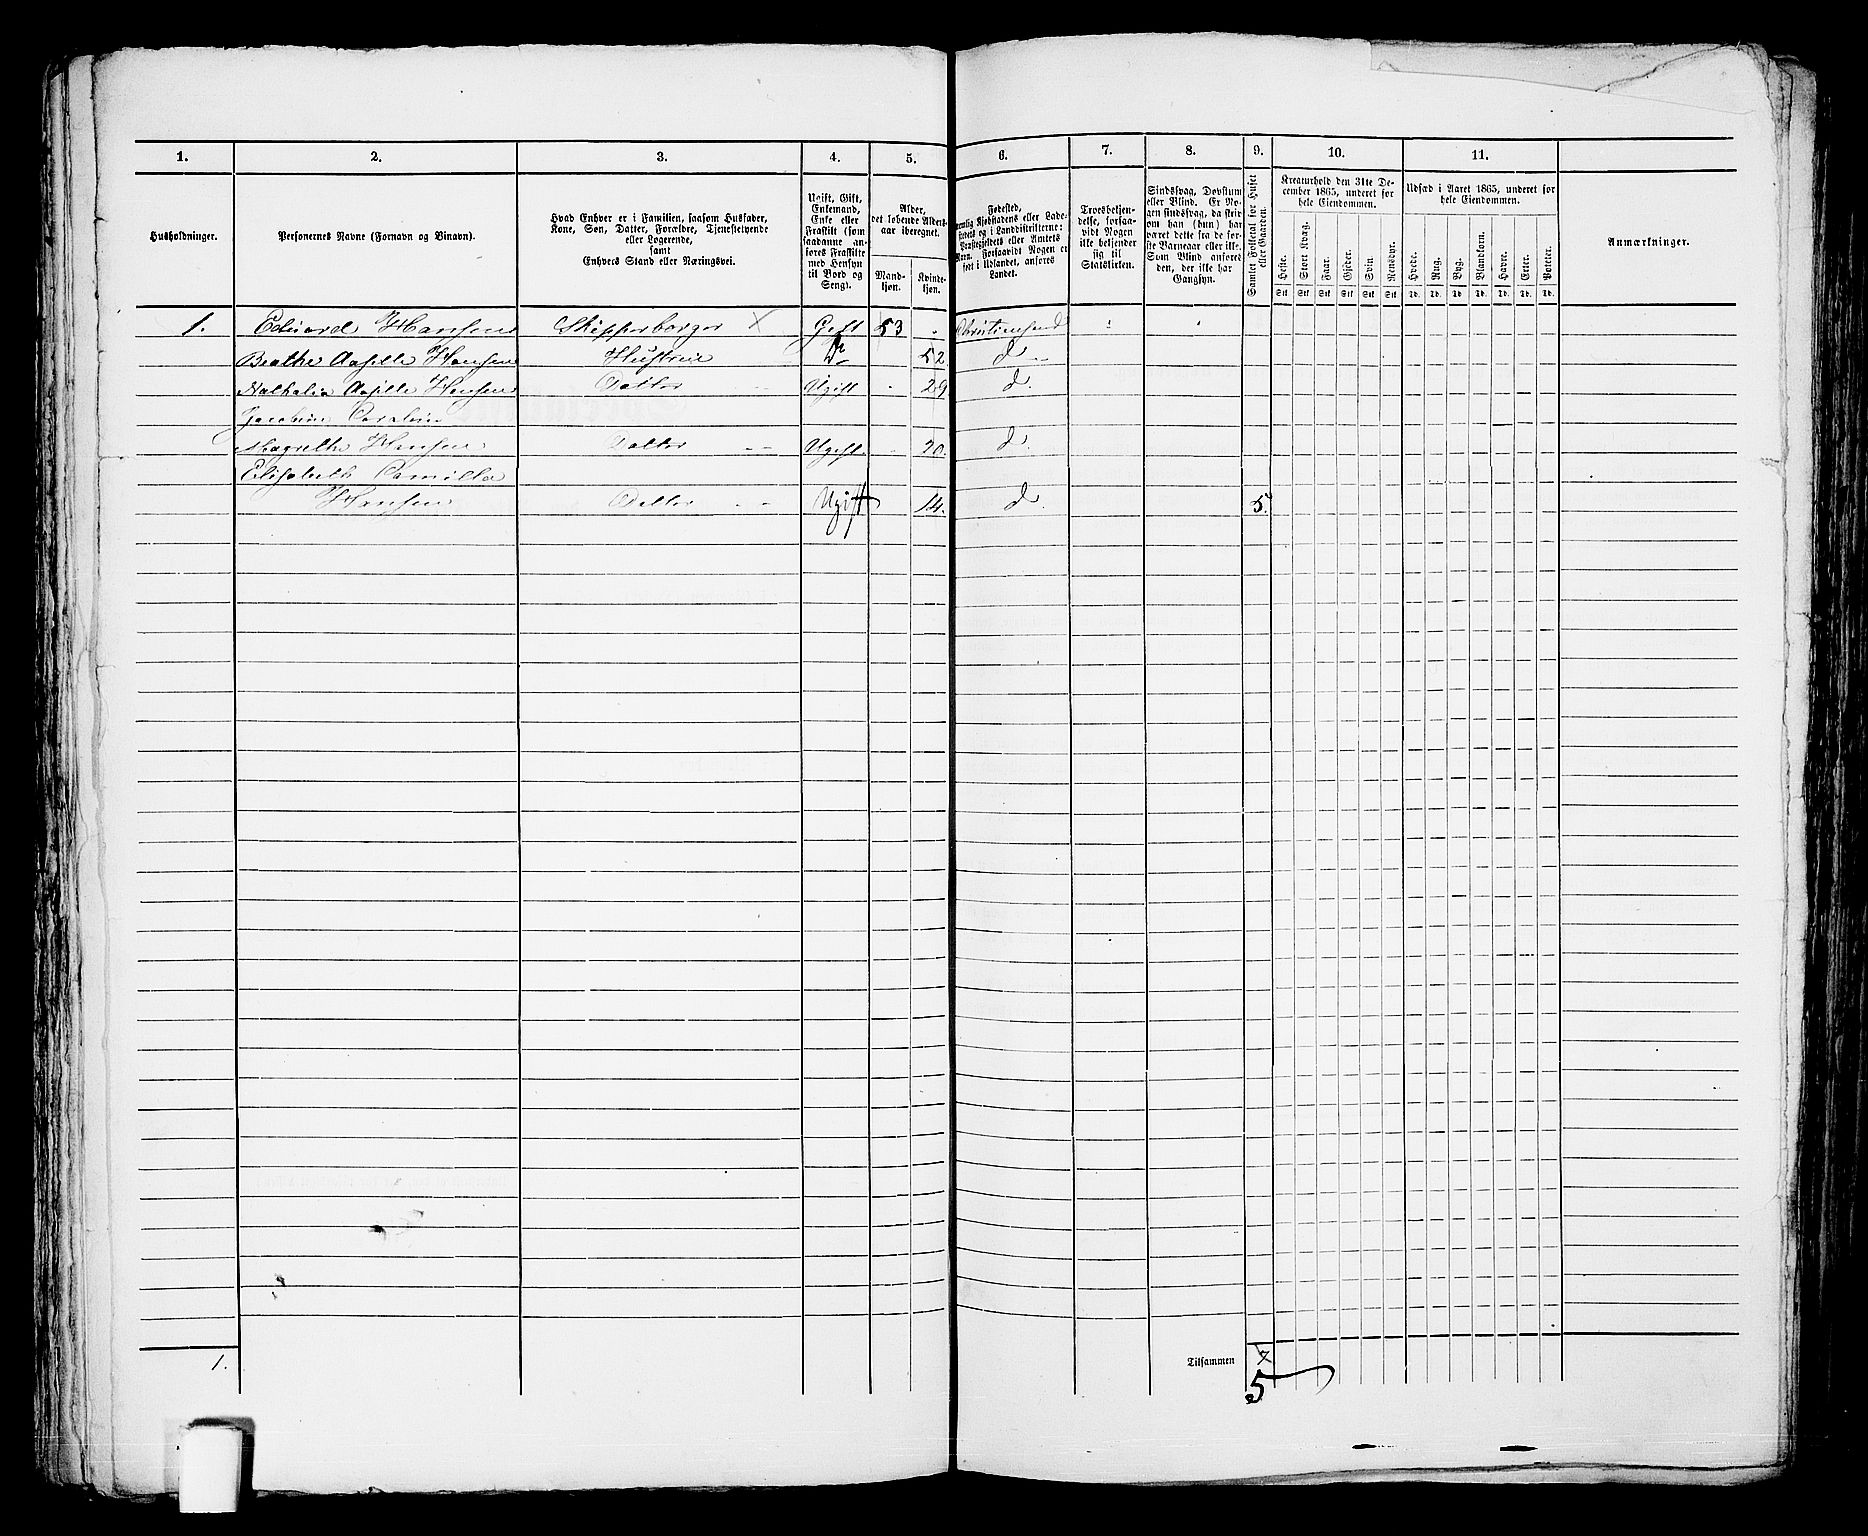 1. 2. 3. 4. 5. 6. 7. 8. 9. 10. 11.
Husholdninger.
Personernes Navne (Fornavn og Binavn).
Hvad Enhver er i Familien, saasom Husfader,
Kone, Søn, Datter, Forældre, Tjenestetyende
eller Logerende,
samt
Enhvers Stand eller Næringsvei.
Ugift, Gift,
Enkemand,
Enke eller
Fraskilt (som
saadanne an-
føres Fraskilte
med Hensyn
til Bord og
Seng).
Alder,
det løbende Alders-
aar iberegnet.
Mand-
kjøn.
Kvinde-
kjøn.
Fødested,
nemlig Kjøbstadens eller Lade-
stedets og i Landdistrikterne:
Præstegjeldets eller Amtets
Navn. Forsaavidt Nogen er
født i Udlandet, anføres
Landet.
Troesbekjen-
delse, forsaa-
vidt Nogen
ikke bekjender
sig til
Statskirken.
Sindssvag, Døvstum
eller Blind. Er No-
gen sindssvag, da skri-
ves om han (hun) har
været dette fra de før-
ste Barneaar eller ikke.
Som Blind anføres
den, der ikke har
Gangsyn.
Samlet Folketal for Huset
eller Gaarden.
Kreaturhold den 31te De-
cember 1865, underet for
hele Eiendommen.
Heste. Stort Kvæg. Faar. Gjeder. Svin. Rensdyr.
Stk Stk Stk Stk Stk Stk
Udsæd i Aaret 1865, underet for
hele Eiendommen.
Hvede. Rug. Byg. Blandkorn. Havre. Erter. Poteter.
Td. Td. Td. Td. Td. Td. Td.
Anmærkninger.
1. Eduard Hansen Skipperborger X Gift 53 Christiansand
Beathe Hansen Hustrue D 52 d
Nathalia Hansen Datter Ugift 29 d
Magrethe Hansen Datter Ugift 20 d
Elisabeth Camilla
Hansen Datter Ugift 14. d. 5.
1. Tilsammen 7
5